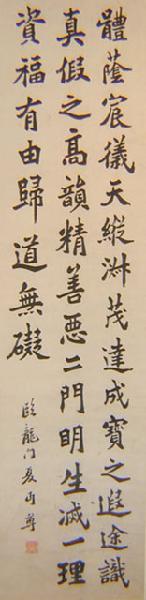 體蔭宸儀天縱淋茂達成實之遐途識
真假之高韻精善惡二門明生滅一理
資福有由歸道無礙
臨龍門夏丏尊